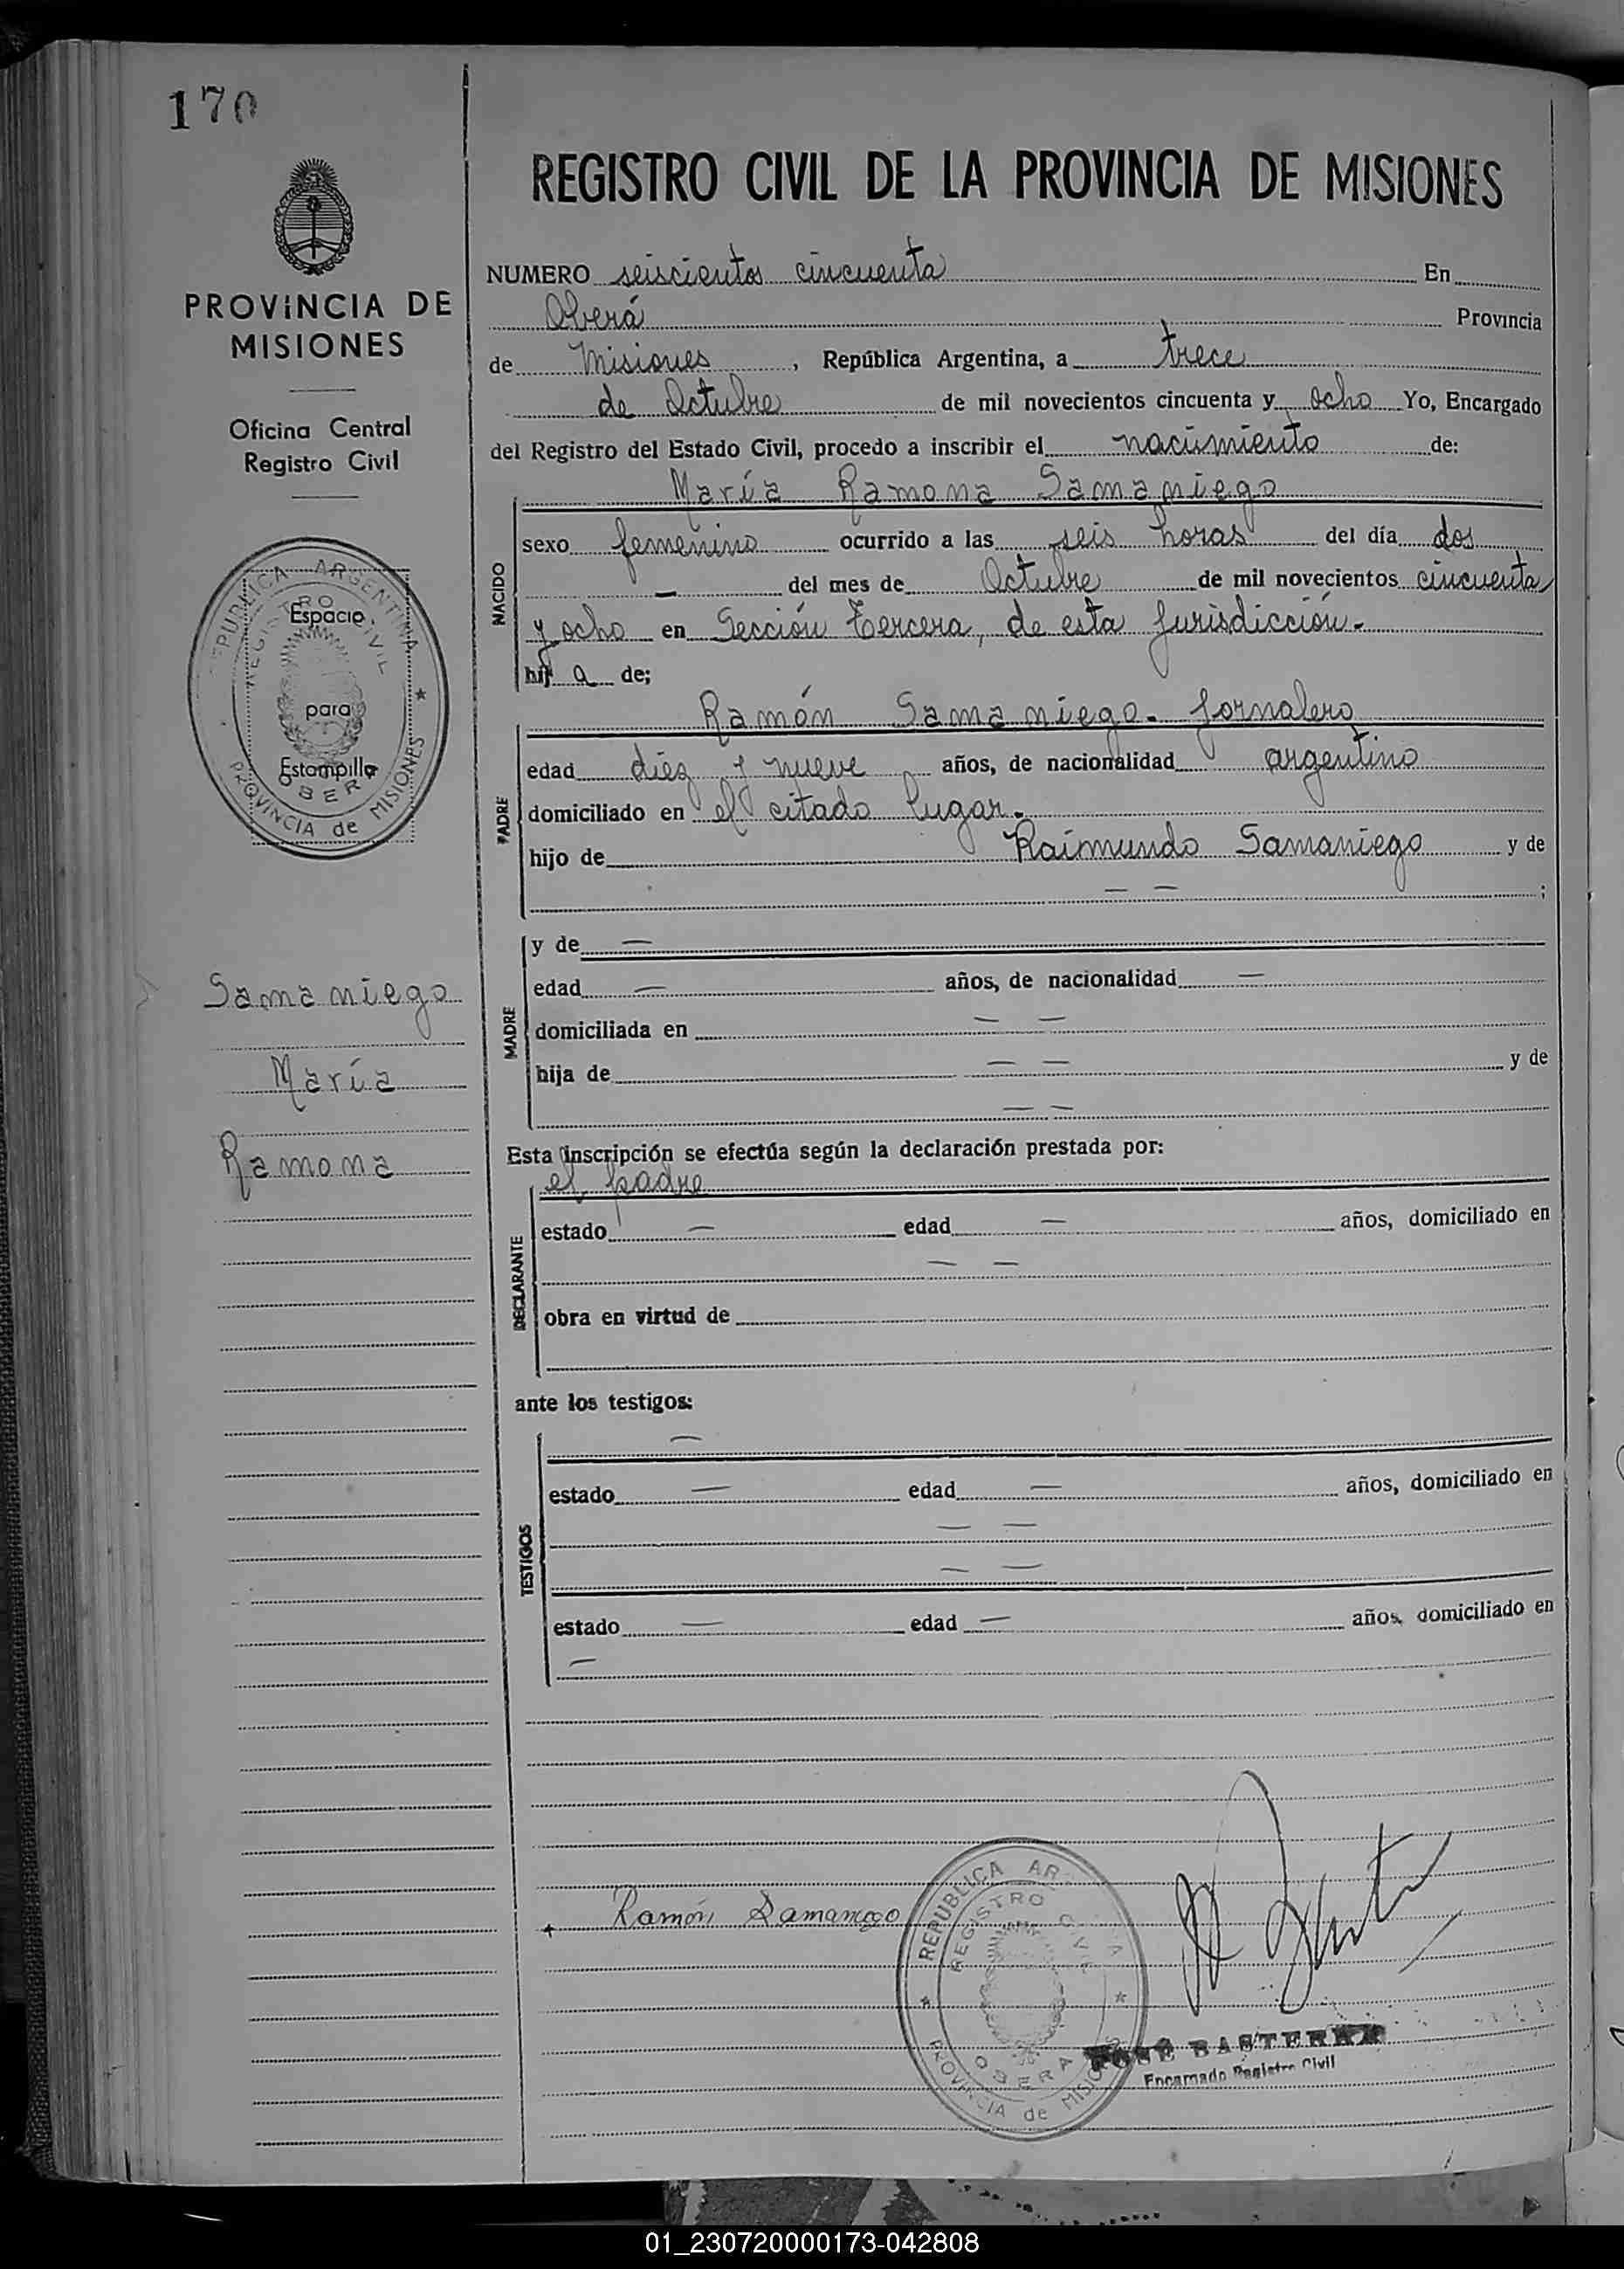 170
PROVINCIA DE
MISIONES
Oficina Central
Registro Civil
REPUBLICA ARGENTINA
REGISTRO CIVIL
Espacio
para
Estampilla
OBERA
PROVINCIA de MISIONES
Samaniego
María
Ramona
REGISTRO CIVIL DE LA PROVINCIA DE MISIONES
NUMERO seiscientos cincuenta En
Oberá Provincia
de Misiones, República Argentina, a trece
de Octubre de mil novecientos cincuenta y ocho Yo, Encargado
del Registro del Estado Civil, procedo a inscribir el nacimiento de:
María Ramona Samaniego
NACIDO
sexo femenino ocurrido a las seis horas del día dos
— del mes de Octubre de mil novecientos cincuenta
y ocho en Sección Tercera, de esta Jurisdicción.-
hij a de;
Ramón Samaniego. Jornalero
PADRE
edad diez y nueve años, de nacionalidad argentino
domiciliado en el citado lugar.
hijo de Raimundo Samaniego y de
— — ;
MADRE
y de —
edad — años, de nacionalidad —
domiciliada en — —
hija de — — y de
— —
Esta inscripción se efectúa según la declaración prestada por:
el padre
DECLARANTE
estado — edad — años, domiciliado en
— —
obra en virtud de
ante los testigos:
—
TESTIGOS
estado — edad — años, domiciliado en
— —
— —
estado — edad — años, domiciliado en
—
Ramón Samaniego
REPUBLICA AR
REGISTRO CIVIL
OBERA
PROVINCIA de MISIONES
JOSÉ BASTERRA
Encargado Registro Civil
01_230720000173-042808